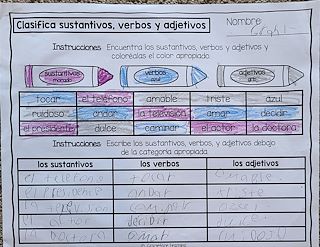 Clasifica sustantivos, verbos y adjetivos
Nombre
Instrucciones Encuentra los sustantivos, verbos y adjetivos y
coloréalos el color apropiado.
sustantivos verbos adjetivos
morado azul gris
tocar el teléfono amable triste azul
ruidoso andar la televisión amar decidir
el presidente dulce caminar el actor la doctora
Instrucciones Escribe los sustantivos, verbos, y adjetivos debajo
de la categoría apropiada.
los sustantivos los verbos los adjetivos
el teléfono tocar amable
el presidente andar
el actor decidir
amar